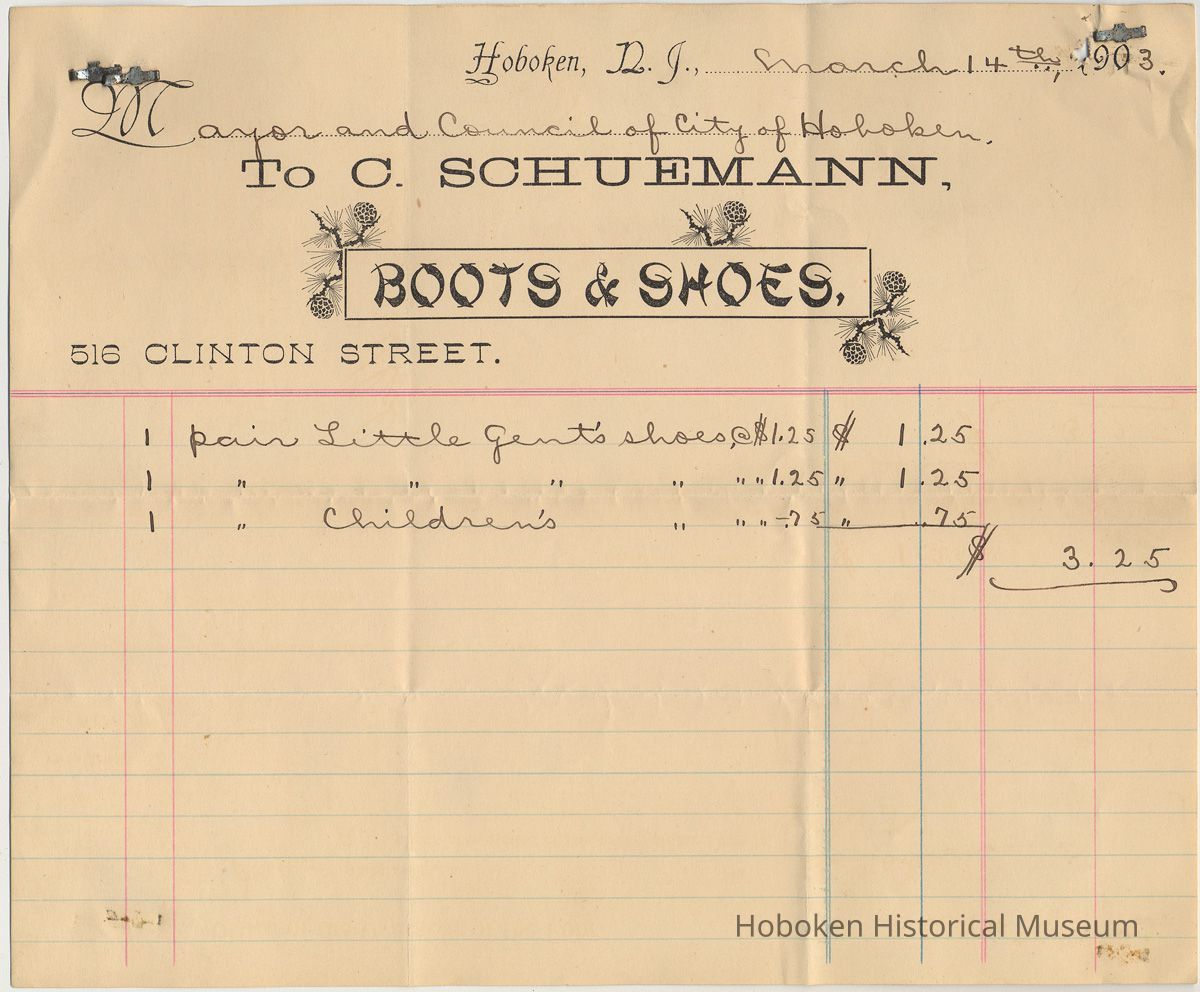 Hoboken, N. J., March 14th, 1903.
Mayor and Council of City of Hoboken.
To C. SCHUEMANN,
BOOTS & SHOES.
516 CLINTON STREET.
1 pair Little Gent's shoes, @ $1.25 $ 1.25
1 " " " " " " 1.25 " 1.25
1 " Children's " " " -.75 " .75
$ 3.25
Hoboken Historical Museum